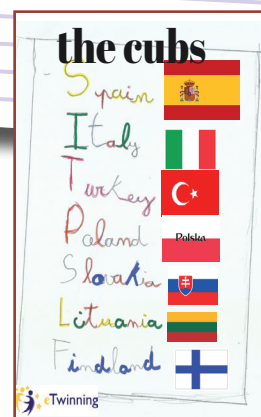 the cubs
Spain
Italy
Turkey
Poland Polska
Slovakia
Lituania
Findland
eTwinning